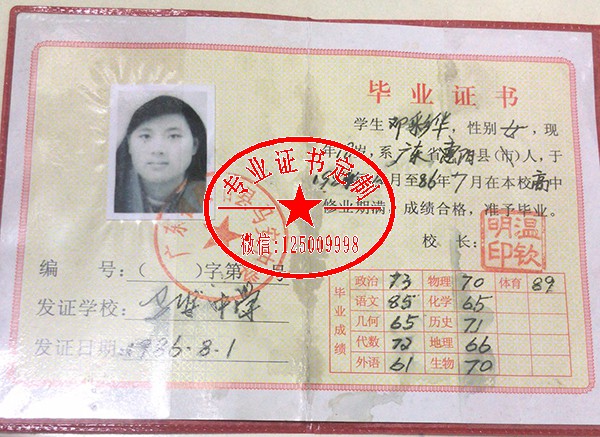 毕业证书
学生邓彩华，性别女，现
年18岁，系广东省惠阳县（市）人，于
月至86年7月在本校高中
修业期满，成绩合格，准予毕业。
校长：
温钦明印
专业证书定制
微信:125009998
编 号：（ ）字第 号
发证学校： 中学
发证日期：1986.8.1
毕业成绩
政治 73 物理 70 体育 89
语文 85 化学 65
几何 65 历史 71
代数 72 地理 66
外语 61 生物 70